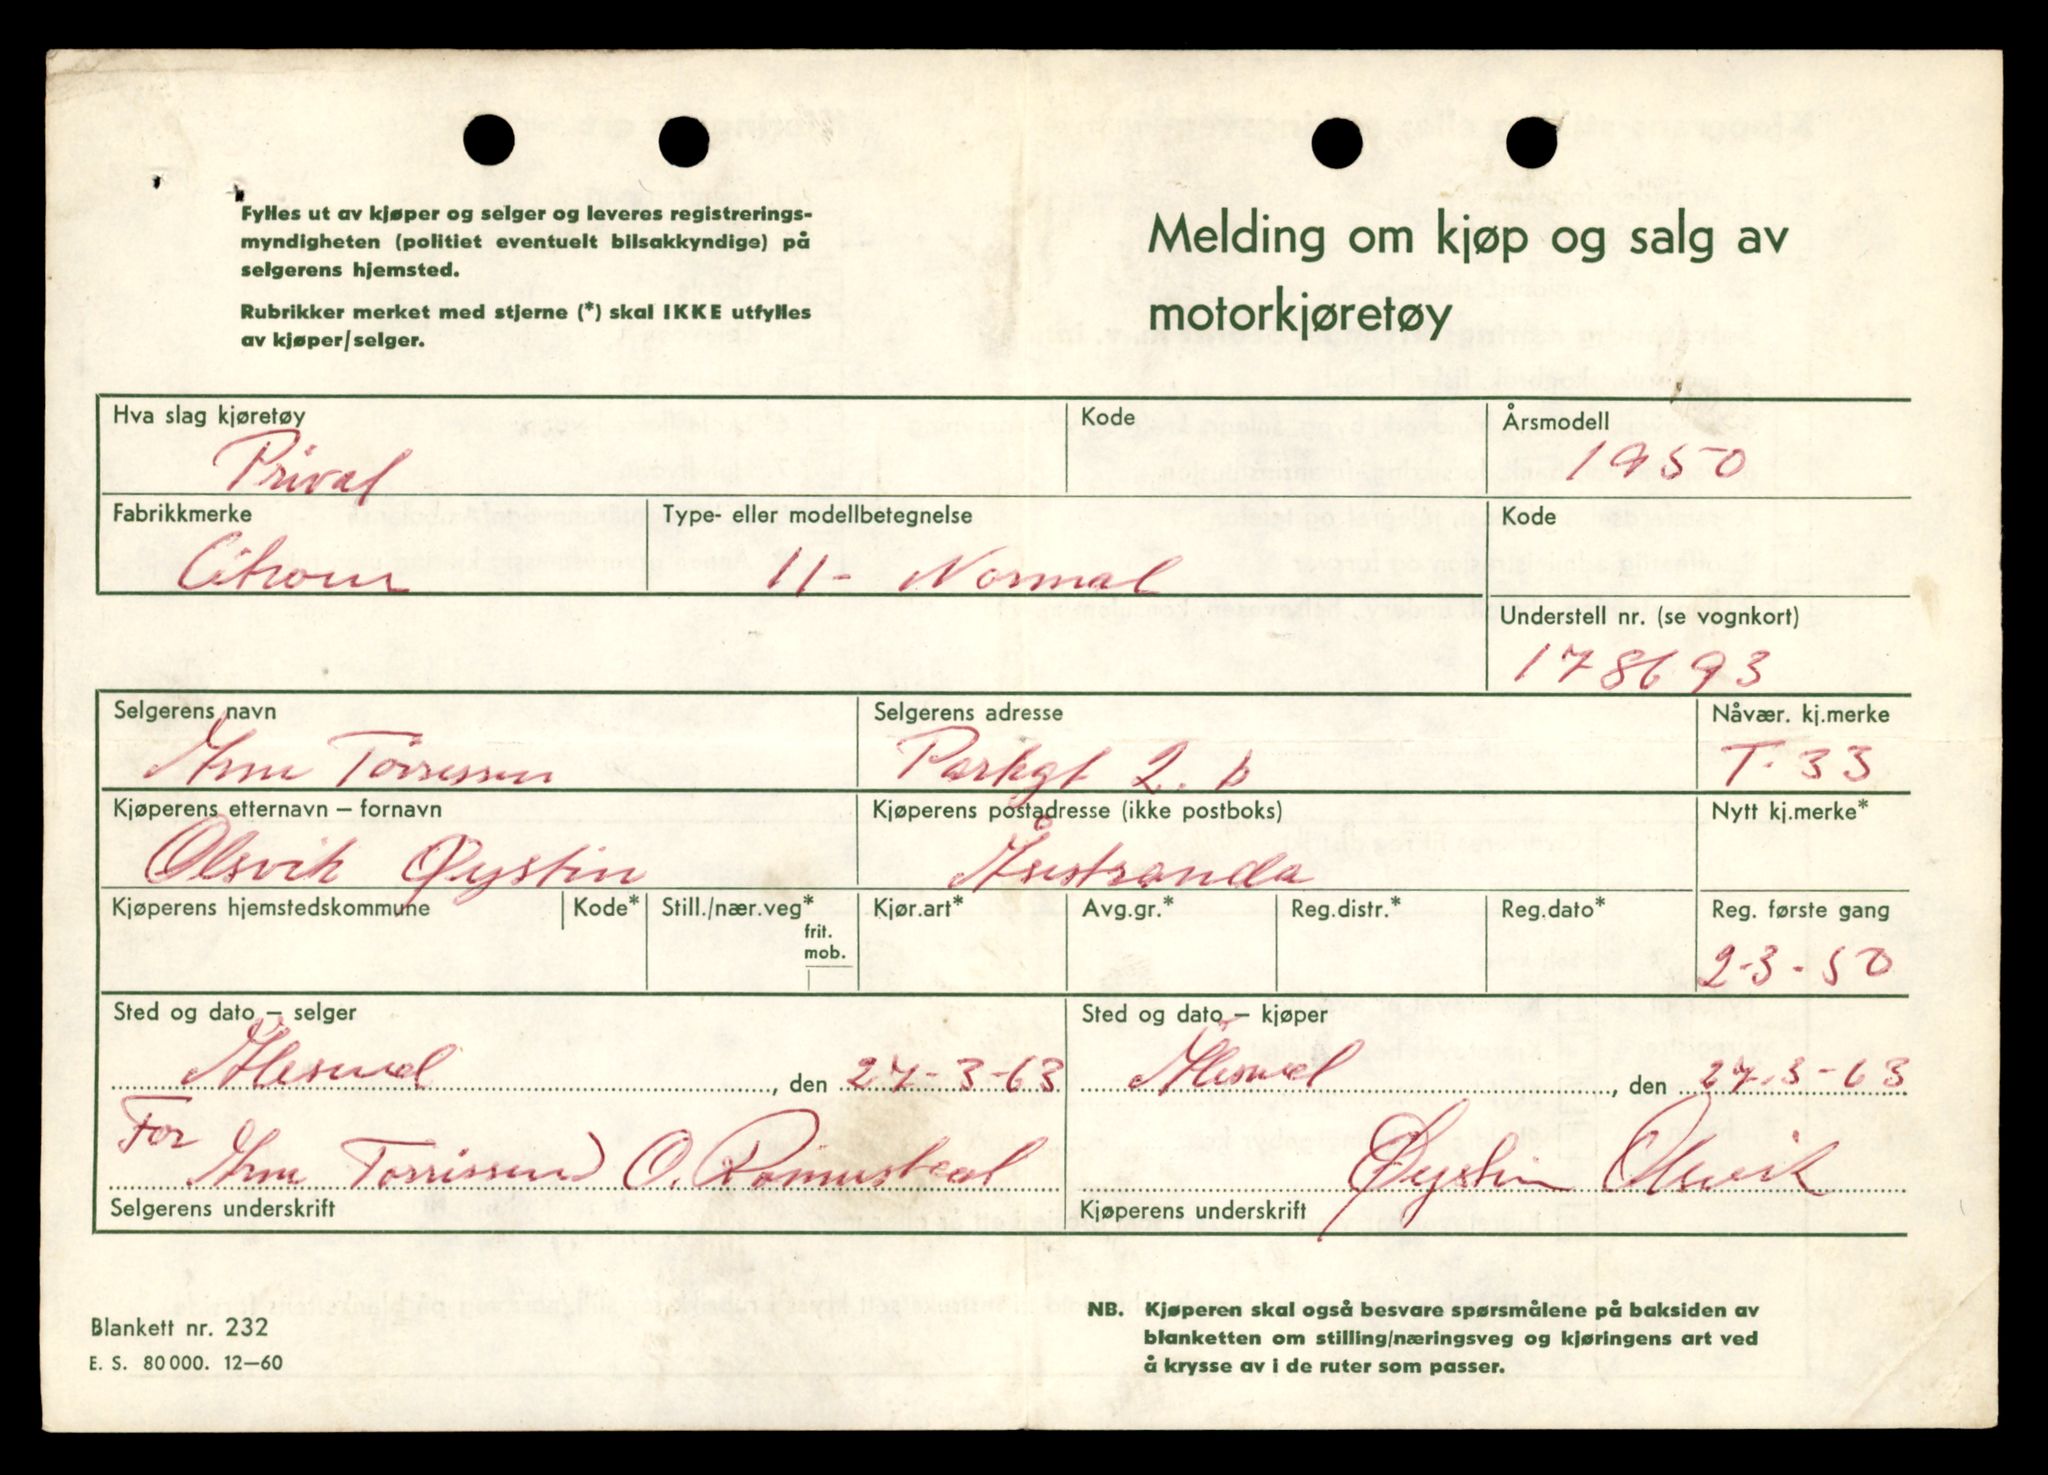 Fylles ut av kjøper og selger og leveres registrerings-
myndigheten (politiet eventuelt bilsakkyndige) på
selgerens hjemsted.
Rubrikker merket med stjerne (*) skal IKKE utfylles
av kjøper/selger.
Melding om kjøp og salg av
motorkjøretøy
Hva slag kjøretøy Kode Årsmodell
Privat 1950
Fabrikkmerke Type- eller modellbetegnelse Kode
Citroen 11- Normal
Understell nr. (se vognkort)
178693
Selgerens navn Selgerens adresse Nåvær. kj.merke
Arne Torrissen Parkgt 2. b T-33
Kjøperens etternavn – fornavn Kjøperens postadresse (ikke postboks) Nytt kj.merke*
Olsvik Øystin Åsestranda
Kjøperens hjemstedskommune Kode* Still./nær.veg* Kjør.art* Avg.gr.* Reg.distr.* Reg.dato* Reg. første gang
frit.
mob.
2-3-50
Sted og dato – selger Sted og dato – kjøper
Ålesund, den 27-3-63 Ålesund, den 27.3-63
For
Arne Torrissen O. Øystin Olsvik
Selgerens underskrift Kjøperens underskrift
Blankett nr. 232
E. S. 80 000. 12–60
NB. Kjøperen skal også besvare spørsmålene på baksiden av
blanketten om stilling/næringsveg og kjøringens art ved
å krysse av i de ruter som passer.